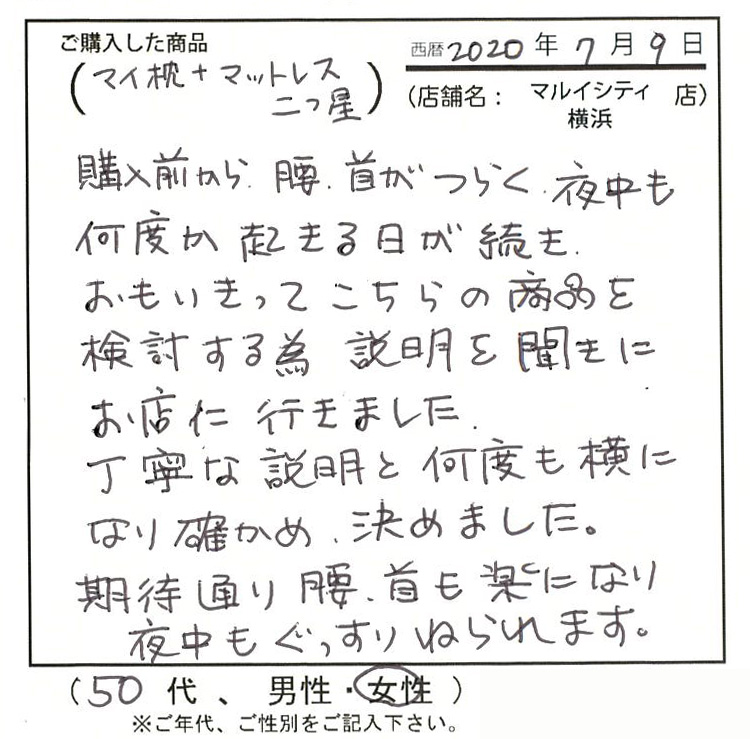 ご購入した商品
西暦2020年7月9日
(マイ枕+マットレス
二つ星)
(店舗名： マルイシティ 店)
横浜
購入前から、腰、首がつらく、夜中も
何度か起きる日が続き、
おもいきってこちらの商品を
検討する為 説明を聞きに
お店に行きました。
丁寧な説明と何度も横に
なり確かめ、決めました。
期待通り腰、首も楽になり
夜中もぐっすりねられます。
(50代、男性・女性)
※ご年代、ご性別をご記入下さい。